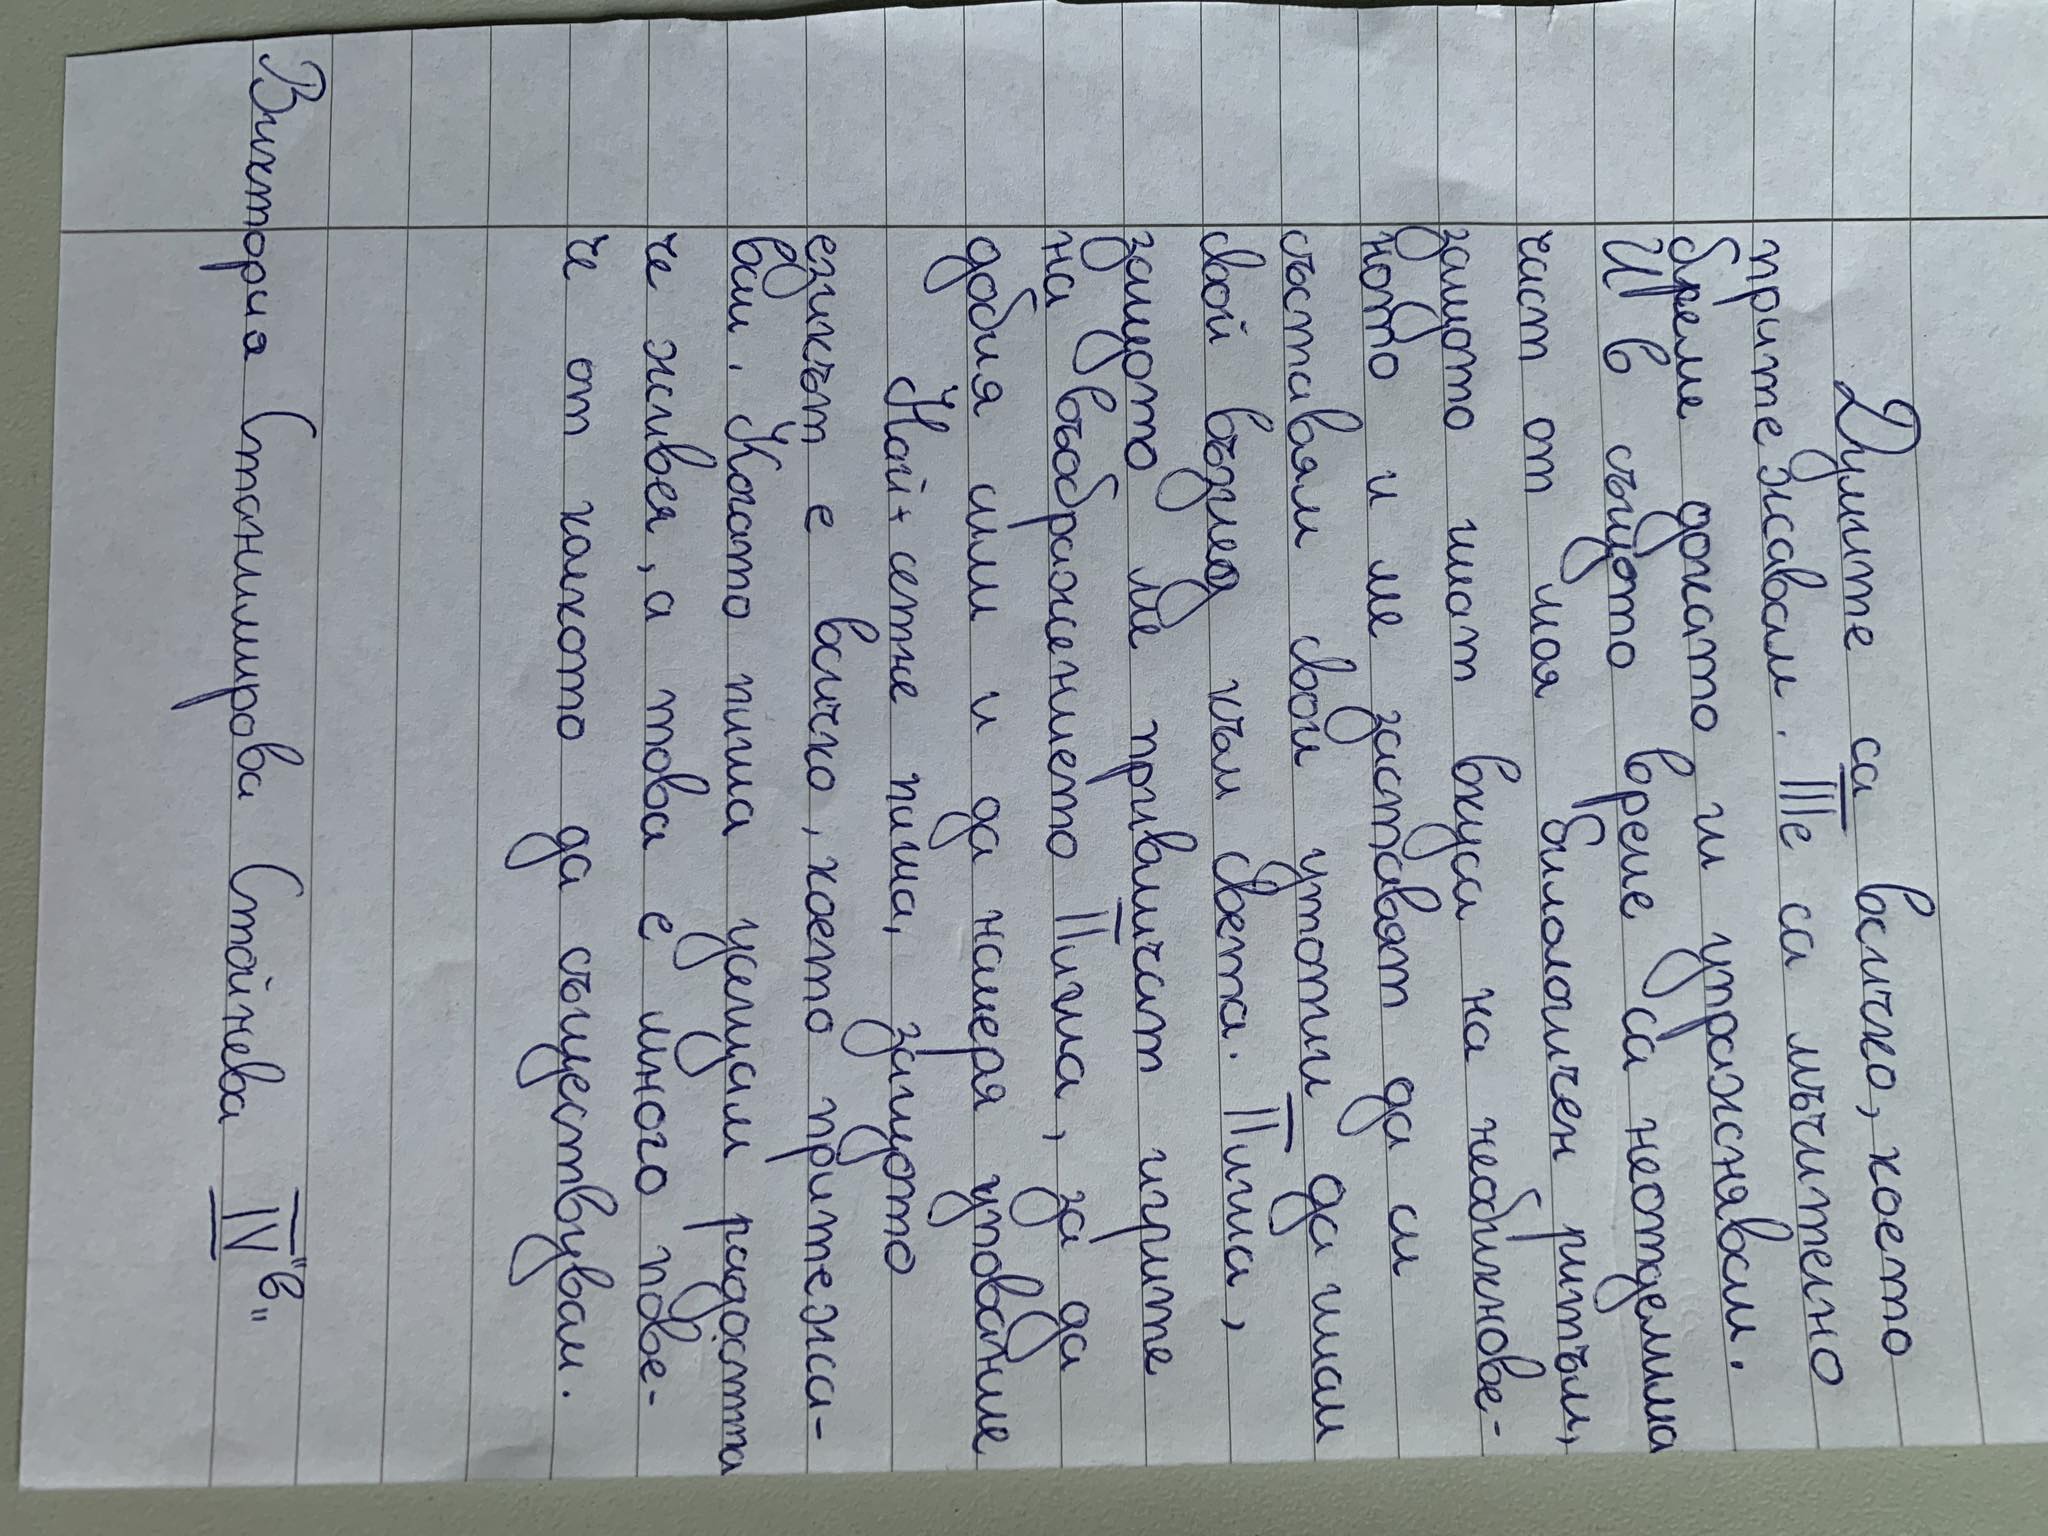 Думите са всичко, което
притежавам. Те са мъчително
бреме докато ги упражнявам.
И в същото време са неотделима
част от моя биологичен ритъм,
защото имат вкуса на необикнове-
ното и ме заставят да си
съставям свои утопии да имам
свой възглед към света. Пиша,
защото ме привличат игрите
на въображението Пиша, за да
добия сили и да намеря упование
Най-сетне пиша, защото
езикът е всичко, което притежа-
вам. Когато пиша усещам радостта
че живея, а това е много пове-
че от колкото да съществувам.
Виктория Станимирова Стайнева IV "в"